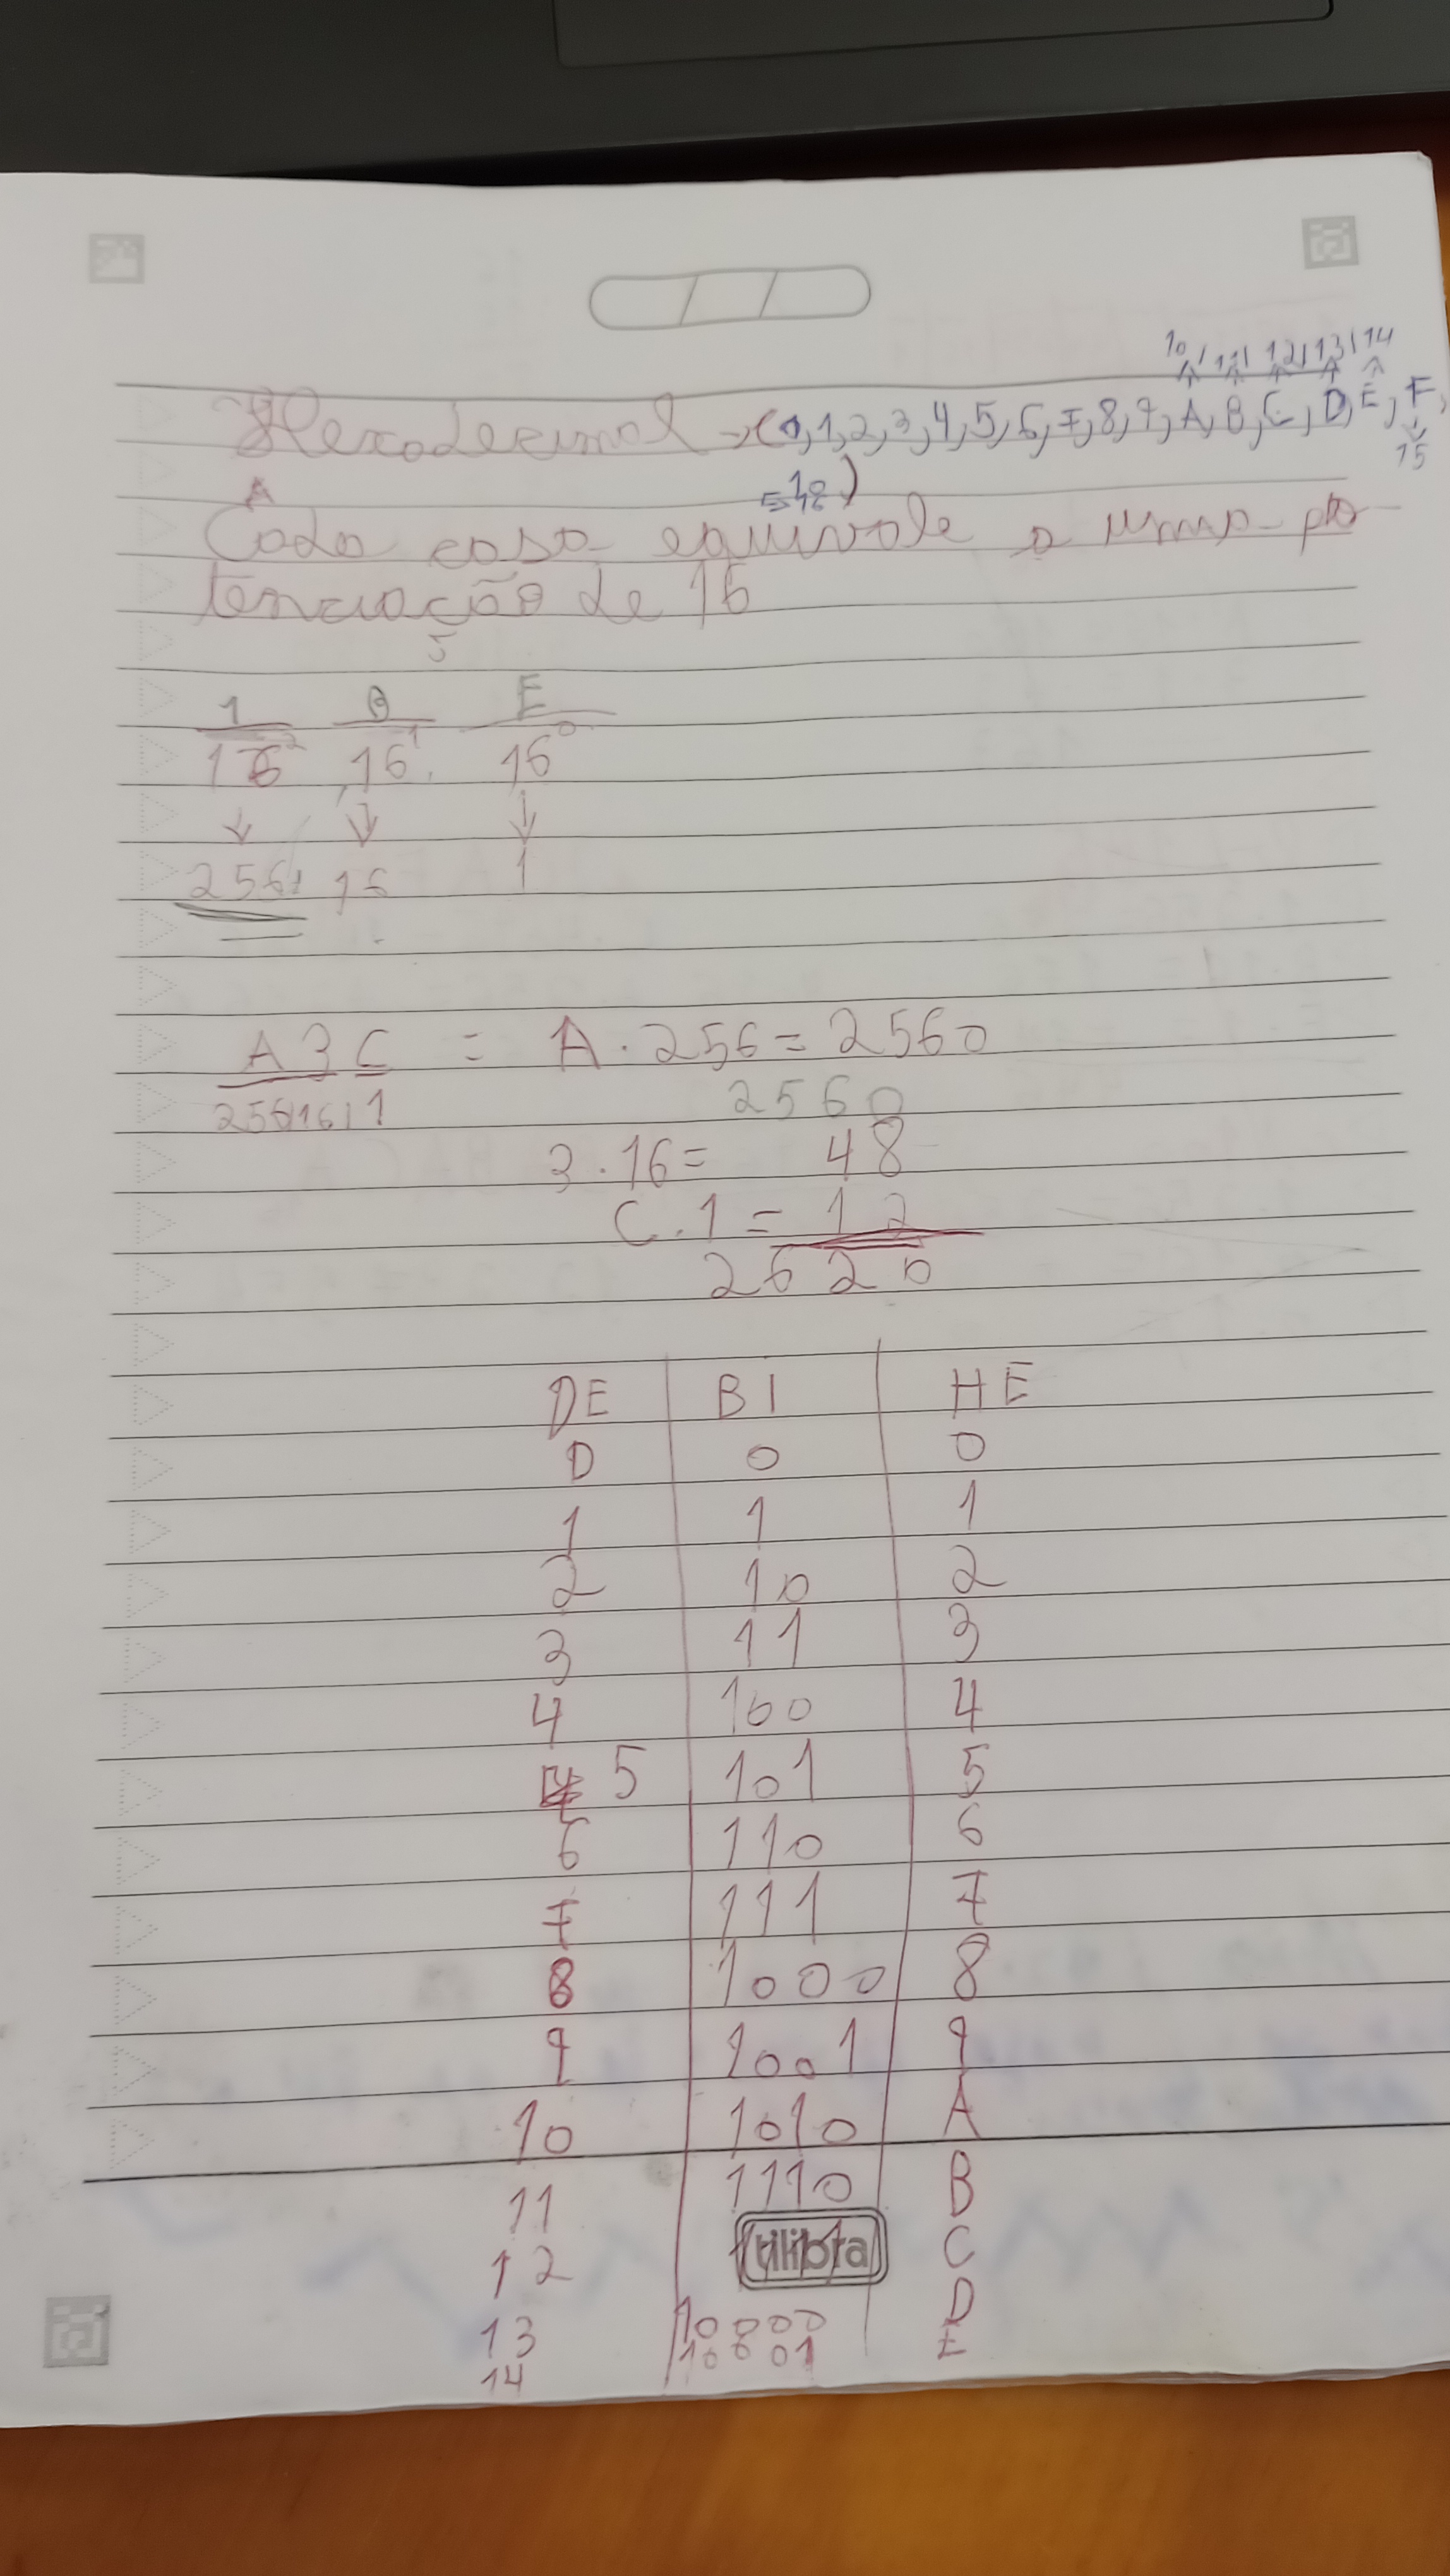 10 / 11 | 12 | 13 | 14
Hexadecimal → (0,1,2,3,4,5,6,7,8,9,A,B,C,D,E,F,
15
A
Cada casa equivale a uma po-
tenciação de 16
5
1 B E
16² 16¹ 16⁰
↓ ↓ ↓
256 16 1
A3C = A . 256 = 2560
256 16 | 1 2560
3 . 16 = 48
C . 1 = 12
2620
DE | BI | HE
0 | 0 | 0
1 | 1 | 1
2 | 10 | 2
3 | 11 | 3
4 | 100 | 4
5 | 101 | 5
6 | 110 | 6
7 | 111 | 7
8 | 1000 | 8
9 | 1001 | 9
10 | 1010 | A
11 | 1110 | B
12 | tilibra | C
13 | 10000 | D
14 | 10001 | E